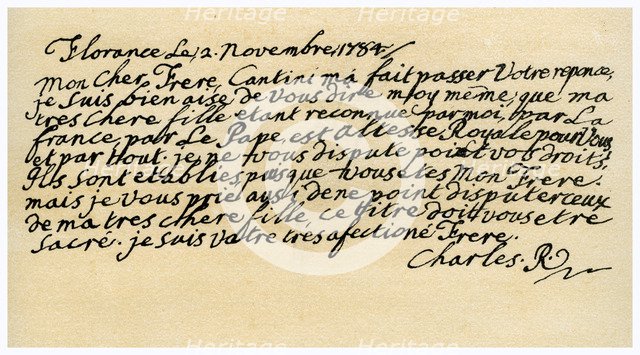 Florance Le, 2. Novembre, 1784
mon Cher Frere, Cantini ma fait passer Votre reponce,
je Suis bien aise de vous dire moy même, que ma
tres chere fille etant reconnue par moi, par La
france, par Le Pape, est altesse Royale pour Vous
et par tout. je ne vous dispute point vos droits,
Ils sont etablies puisque vous etes mon Frere.
mais je vous prie aussi de ne point disputer ceux
de ma tres chere fille, ce titre doit vous etre
Sacré. je suis votre tres afectioné Frere.
Charles. R.
Heritage
Heritage
Heritage
Heritage